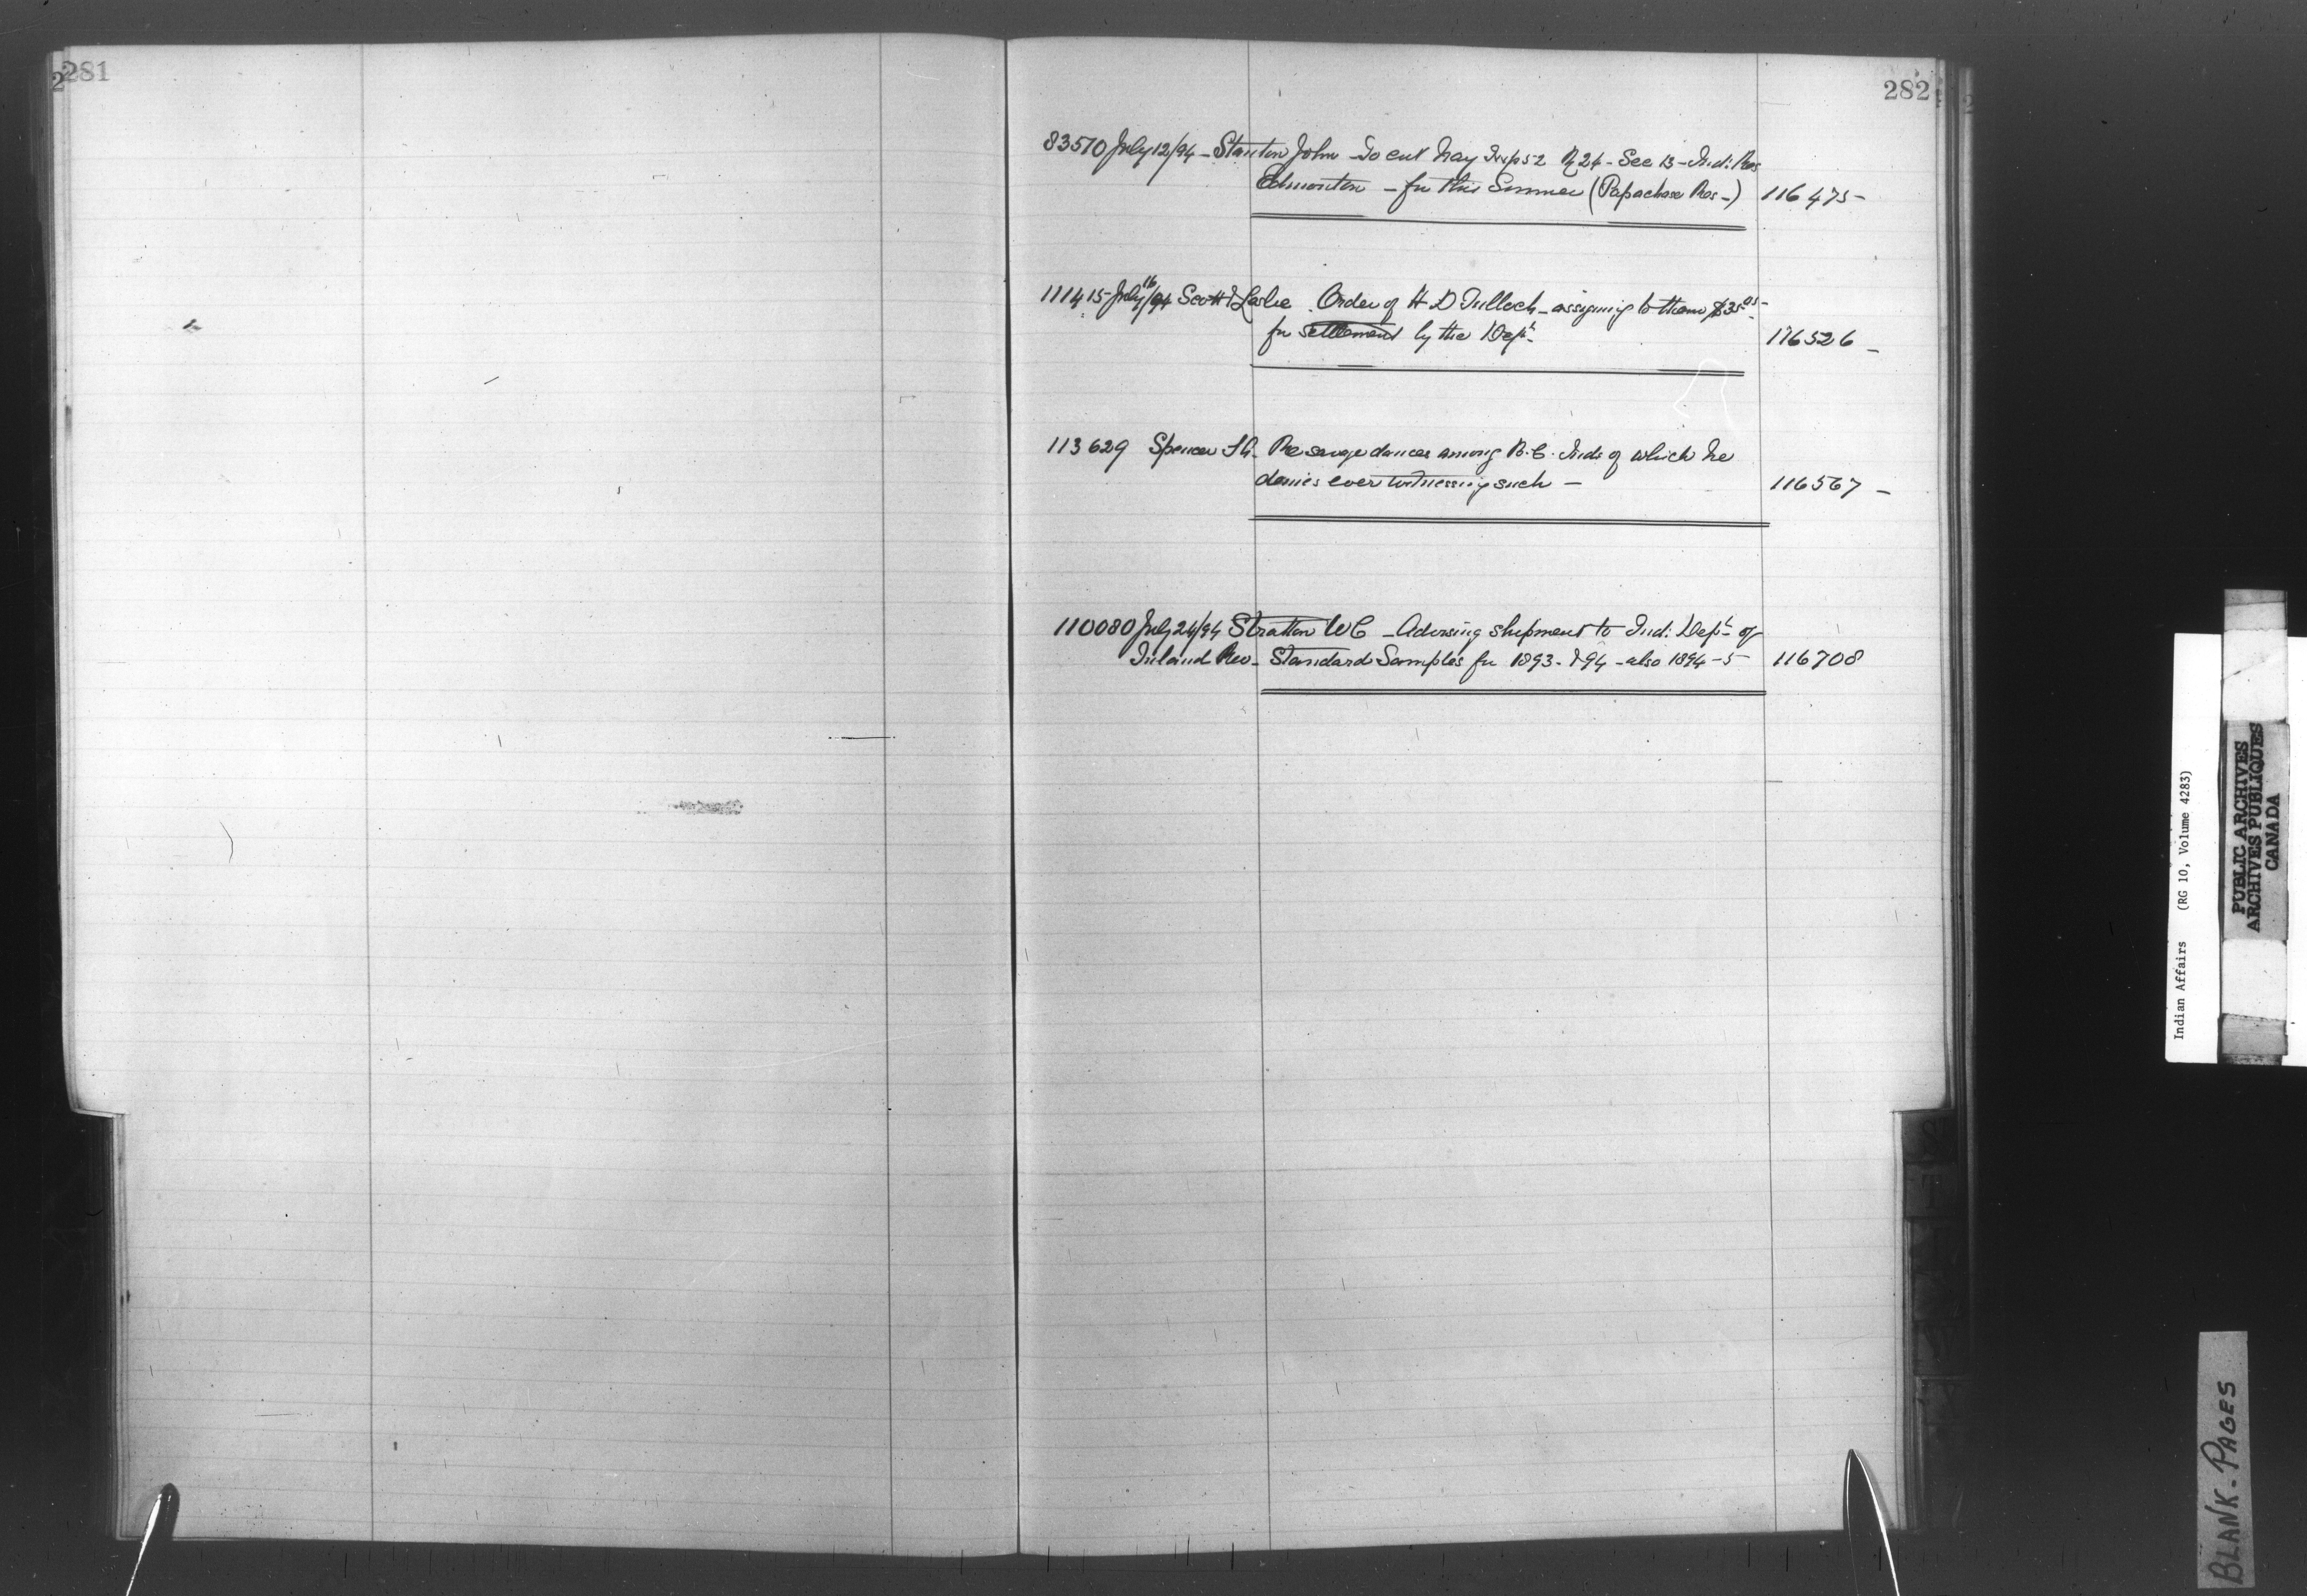 281
282
83570 July 12/94 - Stanton John - To cut hay Twp 52 R 24 - Sec 13 - Ind: Res
Edmonton - for this Summer (Papachase Res -) 116475 -
111415 - July 16/94 Scott & Leslie . Order of H D Tulloch - assigning to them $35
for settlement by the Dept. 116526 -
113629 Spencer Re savage dances among B.C. Inds of which he
denies ever witnessing such - 116567 -
110080 July 24/94 Stratton W C - Advising shipment to Ind: Dept. of
Inland Rev - Standard Samples for 1893 - & 94 - also 1894 - 5 116708
Indian Affairs (RG 10, Volume 4283)
PUBLIC ARCHIVES
ARCHIVES PUBLIQUES
CANADA
BLANK - PAGES